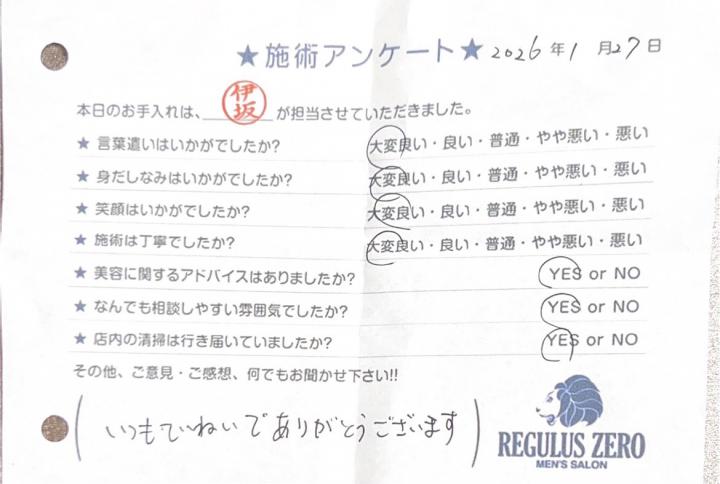 ★施術アンケート★ 2026年1月27日
本日のお手入れは、伊坂が担当させていただきました。
★ 言葉遣いはいかがでしたか? 大変良い・良い・普通・やや悪い・悪い
★ 身だしなみはいかがでしたか? 大変良い・良い・普通・やや悪い・悪い
★ 笑顔はいかがでしたか? 大変良い・良い・普通・やや悪い・悪い
★ 施術は丁寧でしたか? 大変良い・良い・普通・やや悪い・悪い
★ 美容に関するアドバイスはありましたか? YES or NO
★ なんでも相談しやすい雰囲気でしたか? YES or NO
★ 店内の清掃は行き届いていましたか? YES or NO
その他、ご意見・ご感想、何でもお聞かせ下さい!!
(いつもていねいでありがとうございます)
REGULUS ZERO
MEN'S SALON